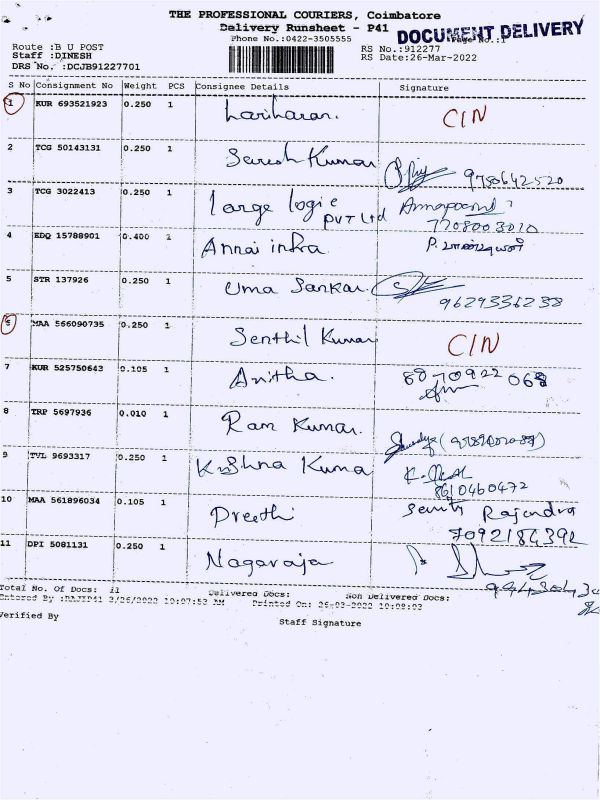 THE PROFESSIONAL COURIERS, Coimbatore
Delivery Runsheet - P41
DOCUMENT DELIVERY
Phone No.:0422-3505555
Page No.:1
Route :B U POST
RS No.:912277
Staff :DINESH
RS Date:26-Mar-2022
DRS No. :DCJB91227701
S No Consignment No Weight PCS Consignee Details Signature
1 KUR 693521923 0.250 1 Lariharan. CIN
2 TCG 50143131 0.250 1 Suresh Kumar 9750642520
3 TCG 3022413 0.250 1 large logic PVT Ltd
7708003010
4 EDQ 15788901 0.400 1 Annai infra
5 STR 137926 0.250 1 Uma Sankar.
9629336238
6 MAA 566090735 0.250 1 Senthil Kumar CIN
7 KUR 525750643 0.105 1 Anitha. 8870922068
8 TRP 5697936 0.010 1 Ram Kumar.
9 TVL 9693317 0.250 1 Krishna Kuma
8610460472
10 MAA 561896034 0.105 1 Preethi Rajendra
7092184392
11 DPI 5081131 0.250 1 Nagaraja
Total No. Of Docs: 11 Delivered Docs: Non Delivered Docs:
Entered By :RAJIP41 3/26/2022 10:07:53 AM Printed On: 26-03-2022 10:08:03
Verified By
Staff Signature